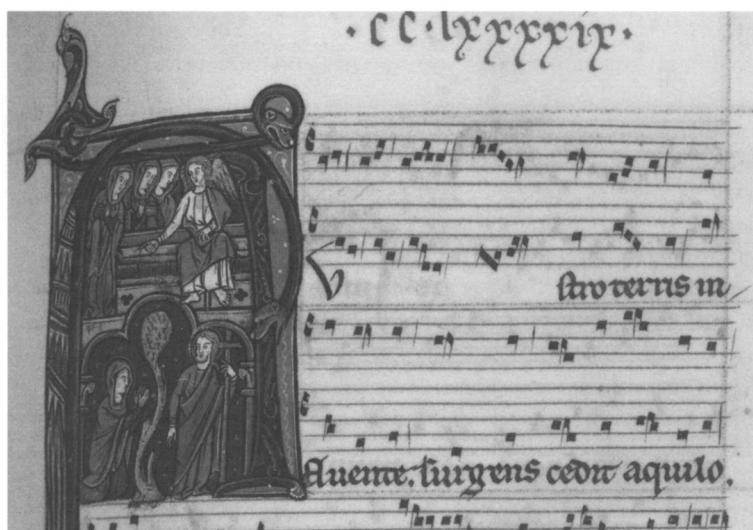 · cc · lxxxxix ·
AV stro terris in
fluente. surgens cedit aquilo.